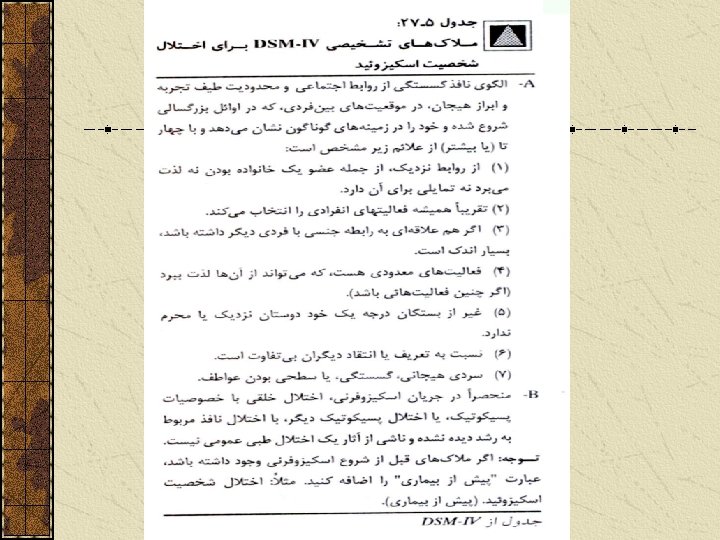 جدول ۵ـ۲۷:
ملاک‌های تشخیصی DSM-IV برای اختلال
شخصیت اسکیزوئید
A- الگوی نافذ گسستگی از روابط اجتماعی و محدودیت طیف تجربه
و ابراز هیجان، در موقعیت‌های بین‌فردی، که در اوائل بزرگسالی
شروع شده و خود را در زمینه‌های گوناگون نشان می‌دهد و با چهار
تا (یا بیشتر) از علائم زیر مشخص است:
(۱) از روابط نزدیک، از جمله عضو یک خانواده بودن نه لذت
می‌برد نه تمایلی برای آن دارد.
(۲) تقریباً همیشه فعالیتهای انفرادی را انتخاب می‌کند.
(۳) اگر هم علاقه‌ای به رابطه جنسی با فردی دیگر داشته باشد،
بسیار اندک است.
(۴) فعالیت‌های معدودی هست، که می‌تواند از آن‌ها لذت ببرد
(اگر چنین فعالیت‌هائی باشد).
(۵) غیر از بستگان درجه یک خود دوستان نزدیک یا محرم
ندارد.
(۶) نسبت به تعریف یا انتقاد دیگران بی‌تفاوت است.
(۷) سردی هیجانی، گسستگی، یا سطحی بودن عواطف.
B- منحصراً در جریان اسکیزوفرنی، اختلال خلقی با خصوصیات
پسیکوتیک، یا اختلال پسیکوتیک دیگر، با اختلال نافذ مربوط
به رشد دیده نشده و ناشی از آثار یک اختلال طبی عمومی نیست.
توجه: اگر ملاک‌های قبل از شروع اسکیزوفرنی وجود داشته باشد،
عبارت "پیش از بیماری" را اضافه کنید. مثلاً: اختلال شخصیت
اسکیزوئید. (پیش از بیماری).
جدول از DSM-IV